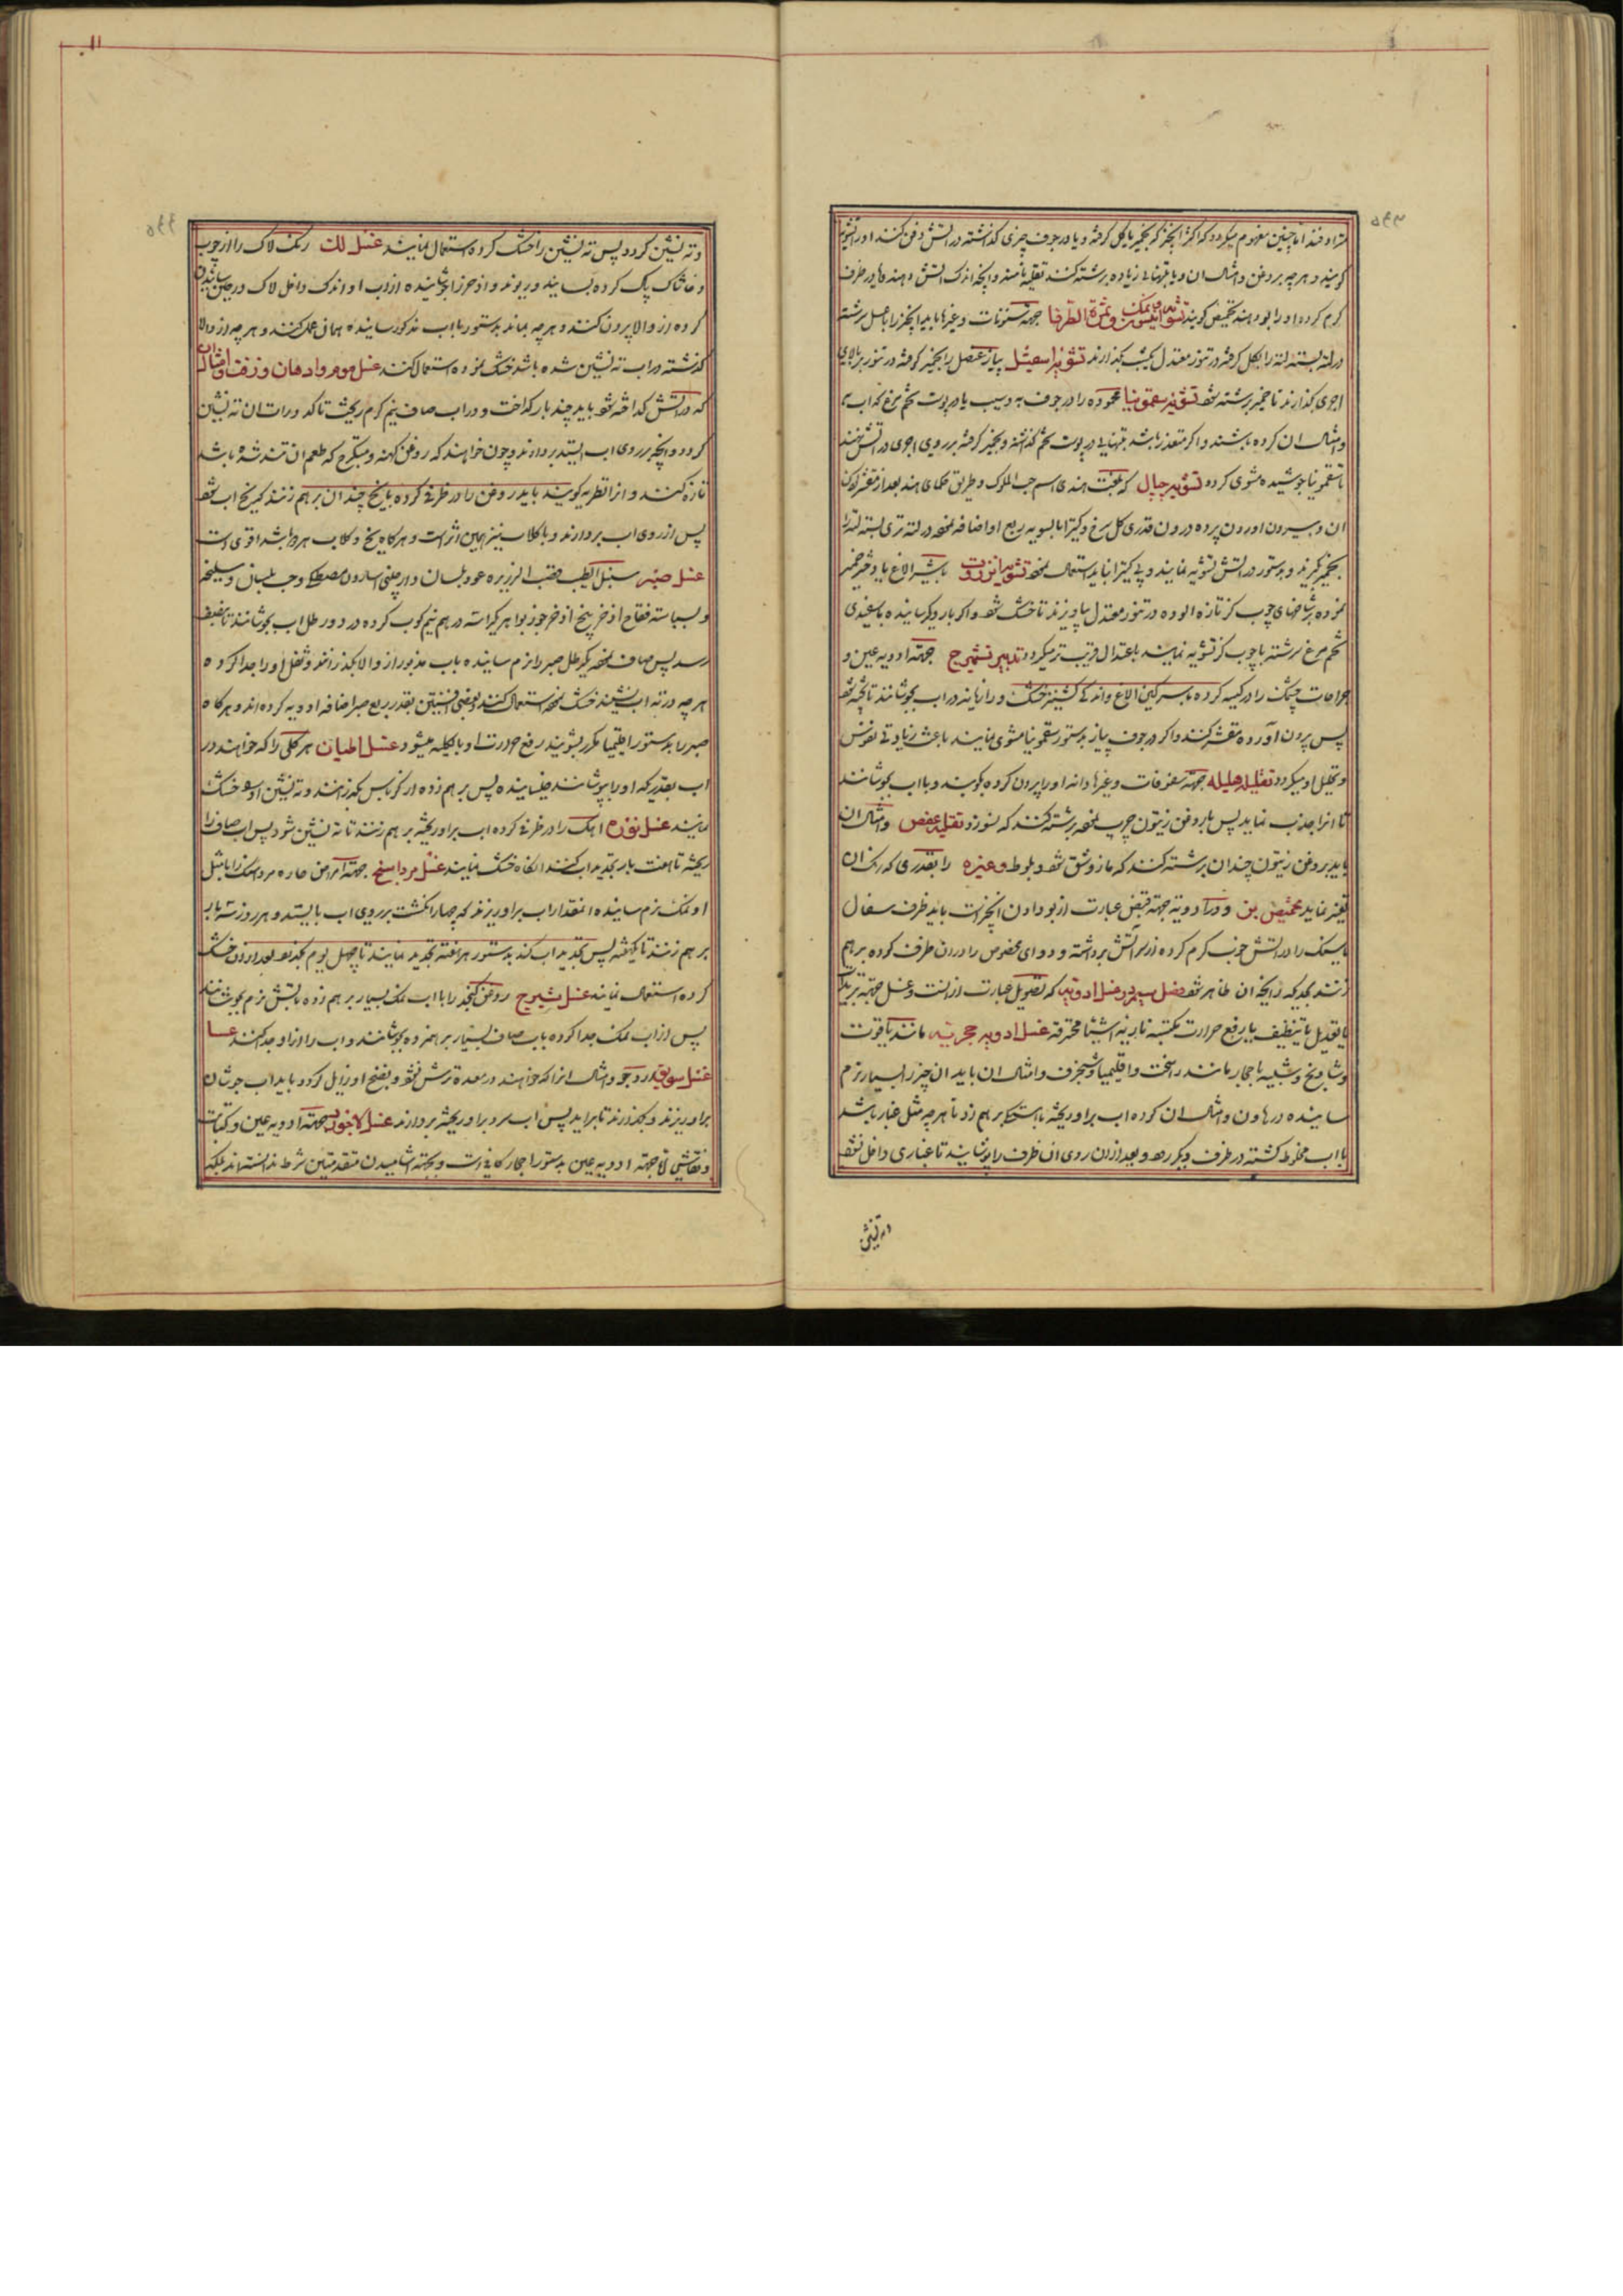 مترادفند اما چنین مفهوم میگردد که اکثر آنچه که بخمیر یا بکل گرفته و یا در جوف چیزی گذاشته در آتش دفن کنند او را تشویه
گویند و هرچه بروغن و امثال ان و یا بتنهایی زیاده برشته کنند تقلیه نامند و آنچه اندک آتش دهند و یا در ظرف
گرم کرده او را بو دهند تحمیص گویند تشویه انیسون و نمک و ثمرة الطرفا جهت سنونات و غیرها باید آنچیز را بعسل سرشته
در لته بسته لته را بکل گرفته در تنور معتدل یکشب بگذارند تشویه اسقیل پیاز عنصل را بخمیر گرفته در تنور بر بالای
اجری گذارند تا خمیر برشته شود تشویه سقمونیا محموده را در جوف به و سیب یا در پوست تخم مرغ که اب به
و امثال ان کرده باشند و اگر متعذر باشد بتنهایی در پوست تخم گذاشته و بخمیر گرفته بر روی اجری در آتش نهند
تا سقمونیا جوشیده مشوی گردد تشویه جپال که بلغت هندی اسم حب الملوک و طریق حکمای هند بعد از مقشر کردن
ان و بیرون آوردن پرده درون قدری گل سرخ و کتیرا بالسویه ربع او اضافه نموده در لته تری بسته لته را
بخمیر گیرند و بدستور در آتش تشویه نمایند و بی کتیرا نباید استعمال نمود تشویه انزروت بشیر الاغ یا دختر خمیر
نموده بر شاخهای چوب کز تازه آلوده در تنور معتدل بیاویزند تا خشک شود و اگر بار دیگر ساییده با سفیدی
تخم مرغ سرشته با چوب کز تشویه نمایند باعتدال قریب تر میگردد تدبیر تشمیزج جهت ادویه عین و
جراحات چشمک را در کیسه کرده با سرگین الاغ و اندکی گشنیز خشک و رازیانه در آب بجوشانند تا پخته شود
پس بیرون آورده مقشر کنند و اگر در جوف پیاز بدستور سقمونیا مشوی نمایند باعث زیادتی نفوذش
و تحلیل او میگردد تقلیه هلیله جهت سفوفات و غیرها دانه او را بیرون کرده بکوبند و با اب بجوشانند
تا انرا جذب نماید پس با روغن زیتون چرب نموده برشته کنند که نسوزد تقلیه عفص و امثال ان
باید بروغن زیتون چندان برشته کنند که مازو شق شود و بلوط و غیره را بقدری که رنک ان
تغیر نماید تحمیص بزر و در ادویه جهت قبض عبارت از بو دادن آنچیز است باید ظرف سفال
یا سنک را در آتش خوب گرم کرده از سر آتش برداشته و دوای مخصوص را در ان ظرف کرده بر هم
زنند بحدیکه رایحه ان ظاهر شود فصل سیم در غسل ادویه که تصویل عبارت از انست و غسل جهت تبرید
یا تعدیل یا تنظیف یا رفع حرارت مکتسبه ناریه اشیا محترقه غسل ادویه حجریه مانند یاقوت
و شادنج و شبیه باحجار مانند راسخت و اقلیمیا و شنجرف و امثال ان باید ان چیز را بسیار نرم
ساییده در هاون و امثال ان کرده اب بر او ریخته با دسته بر هم زد تا هرچه مثل غبار باشد
با اب مخلوط گشته در ظرف دیگر رود و بعد از ان روی ان ظرف را بپوشانید تا غباری داخل نشود
و ته نشین
و ته نشین گردد پس ته نشین را خشک کرده استعمال نمایند غسل لک رنک لاک را از چوب
و خاشاک پاک کرده بسایند و ریوند و اذخر را جوشانیده از آب او اندک داخل لاک در حین ساییدن
کرده از والا بیرون کنند و هرچه بماند بدستور با اب مذکور ساییده همان عمل کنند و هرچه از والا
گذشته در اب ته نشین شده باشد خشک نموده استعمال کنند غسل موم و ادهان و زفت و امثال ان
که در آتش گداخته شود باید چند بار گداخت و در اب صاف نیم گرم ریخت تا کدورات ان ته نشین
گردد و انچه بر روی اب ایستد بردارند و چون خواهند که روغن کهنه و متکرج که طعم ان تند شده باشد
تازه کنند و انرا تطریه گویند باید روغن را در ظرفی کرده با یخ چندان بر هم زنند که یخ اب شود
پس از روی اب بردارند و با کلاب نیز همین اثر است و هرگاه یخ و کلاب هر دو باشد اقوی است
غسل صبر سنبل الطیب قصب الزریره عود بلسان دارچینی اسارون مصطکی و حب بلسان و سلیخه
و بسباسه فقاح اذخر بیخ اذخر جوز بوا هر یک راسته درهم نیم کوب کرده در دو رطل اب بجوشانند تا بنصف
رسد پس صاف نموده یکرطل صبر را نرم ساییده باب مذبور از والا بگذرانند و ثفل او را جدا کرده
هرچه در ته اب نشیند خشک نموده استعمال کنند و بعضی افسنتین بقدر ربع صبر اضافه ادویه کرده اند و هرگاه
صبر را بدستور اقلیمیا مکرر بشویند رفع حرارت او بالکلیه میشود غسل اطیان هر گلی را که خواهند در
اب بقدریکه او را بپوشانند خیسانیده پس بر هم زده از کرباس بگذرانند و ته نشین او را خشک
نمایند غسل نوره آهک را در ظرفی کرده اب بر او ریخته بر هم زنند تا ته نشین شود پس اب صاف را
ریخته تا هفت بار تجدید اب کنند انگاه خشک نمایند غسل مرداسنج جهت امراض حاره مرداسنک را با مثل
او نمک نرم ساییده انمقدار اب بر او ریزند که چهار انگشت بر روی اب بایستد و هر روز سه بار
بر هم زنند تا یکهفته پس تجدید اب کنند بدستور هر هفته تجدید نمایند تا چهل یوم بگذرد بعد از ان خشک
کرده استعمال نمایند غسل شیرج روغن کنجد را با اب نمک بسیار بر هم زده باتش نرم بجوشانند
پس از اب نمک جدا کرده باب صاف بسیار بر هم زده بجوشانند و اب را از او جدا کنند
غسل سویق ارد جو و امثال انرا که خواهند در معده ترش نشود و نفخ او زایل گردد باید اب جوشان
بر او ریزند و بگذارند تا براید پس اب سرد بر او ریخته بردارند غسل لاجورد جهت ادویه عین و کتابت
و نقاشی اما جهت ادویه عین بدستور احجار کافی است و بجهت اشامیدن متقدمین شرط ندانسته اند بلکه